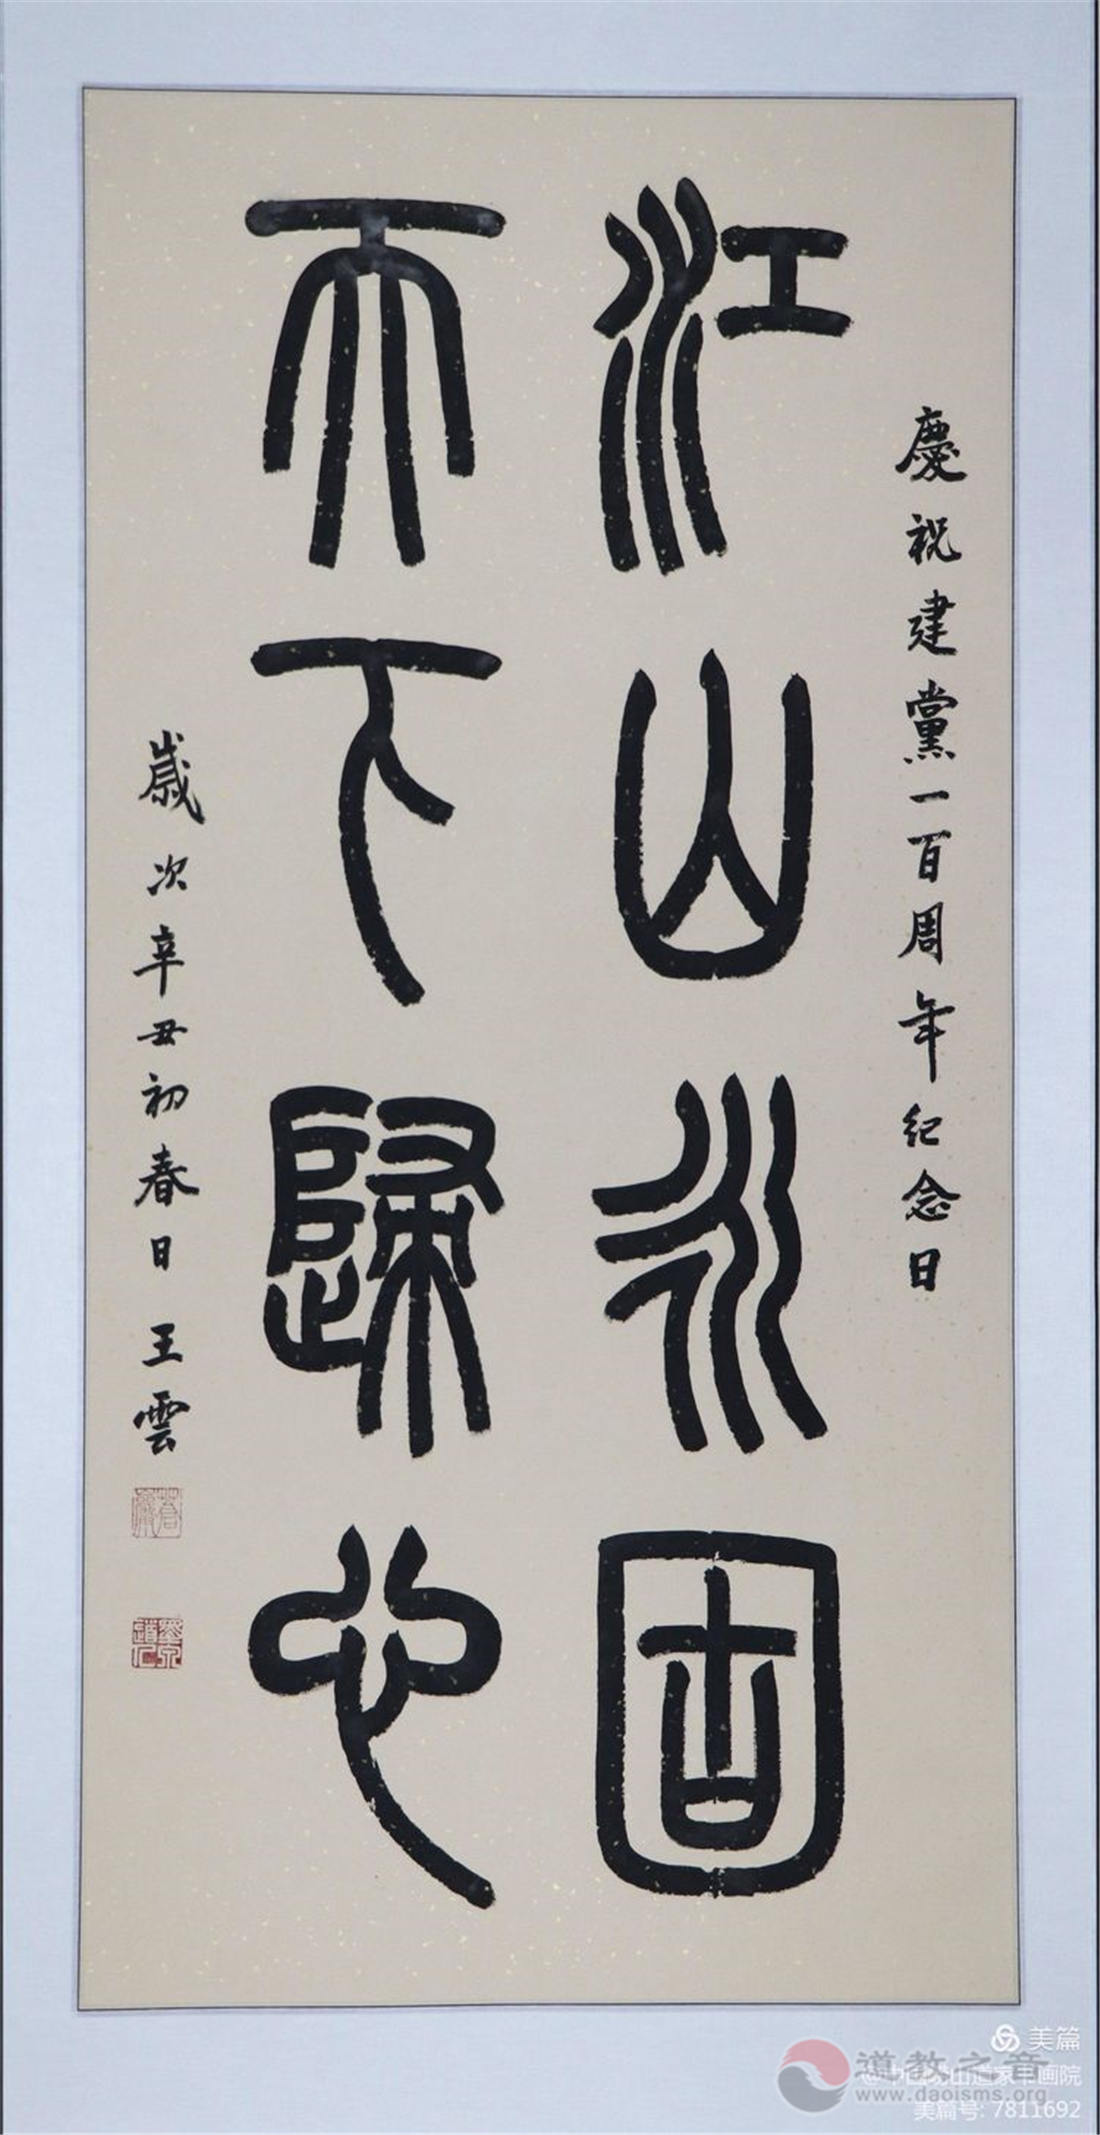 慶祝建黨一百周年紀念日
江山永固
天下歸心
歲次辛丑初春日王雲
美篇
道教之音
www.daoisms.org
山道家书画院
美篇号: 7811692